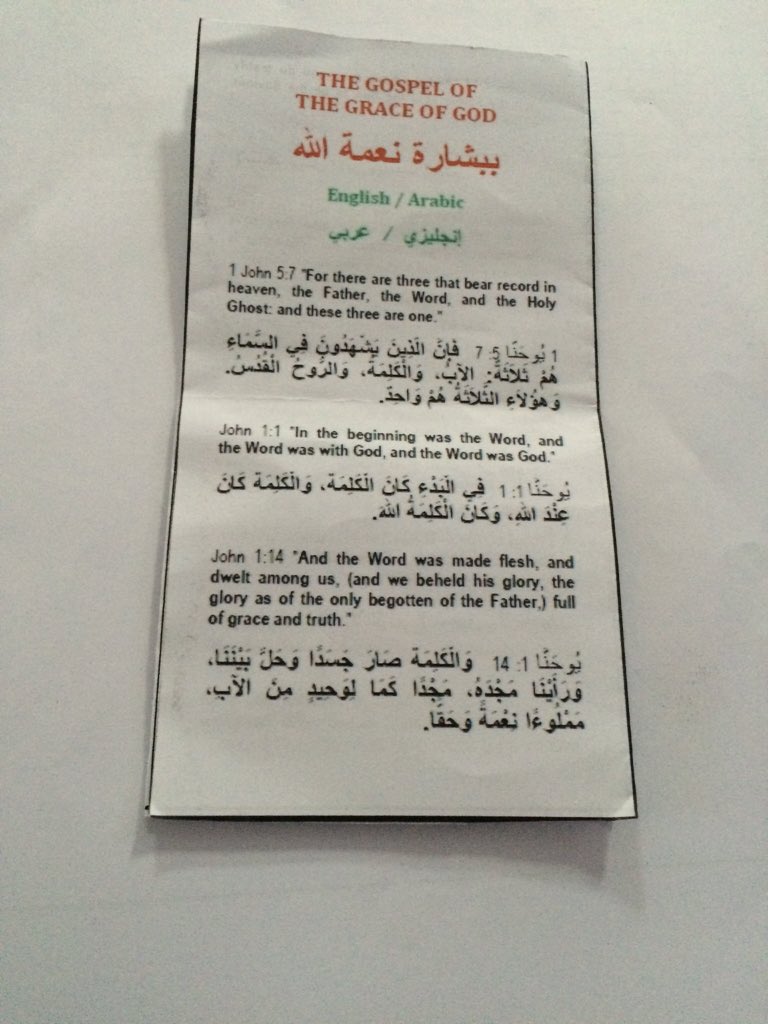 THE GOSPEL OF
THE GRACE OF GOD
ببشارة نعمة الله
English / Arabic
إنجليزي / عربي
1 John 5:7 "For there are three that bear record in
heaven, the Father, the Word, and the Holy
Ghost: and these three are one."
1 يُوحَنَّا 5: 7 فَإِنَّ الَّذِينَ يَشْهَدُونَ فِي السَّمَاءِ
هُمْ ثَلَاثَةٌ: الآبُ، وَالْكَلِمَةُ، وَالرُّوحُ الْقُدُسُ.
وَهؤُلَاءِ الثَّلَاثَةُ هُمْ وَاحِدٌ.
John 1:1 "In the beginning was the Word, and
the Word was with God, and the Word was God."
يُوحَنَّا 1: 1 فِي الْبَدْءِ كَانَ الْكَلِمَةُ، وَالْكَلِمَةُ كَانَ
عِنْدَ اللهِ، وَكَانَ الْكَلِمَةُ اللهَ.
John 1:14 "And the Word was made flesh, and
dwelt among us, (and we beheld his glory, the
glory as of the only begotten of the Father,) full
of grace and truth."
يُوحَنَّا 1: 14 وَالْكَلِمَةُ صَارَ جَسَدًا وَحَلَّ بَيْنَنَا،
وَرَأَيْنَا مَجْدَهُ، مَجْدًا كَمَا لِوَحِيدٍ مِنَ الآبِ،
مَمْلُوءًا نِعْمَةً وَحَقًّا.